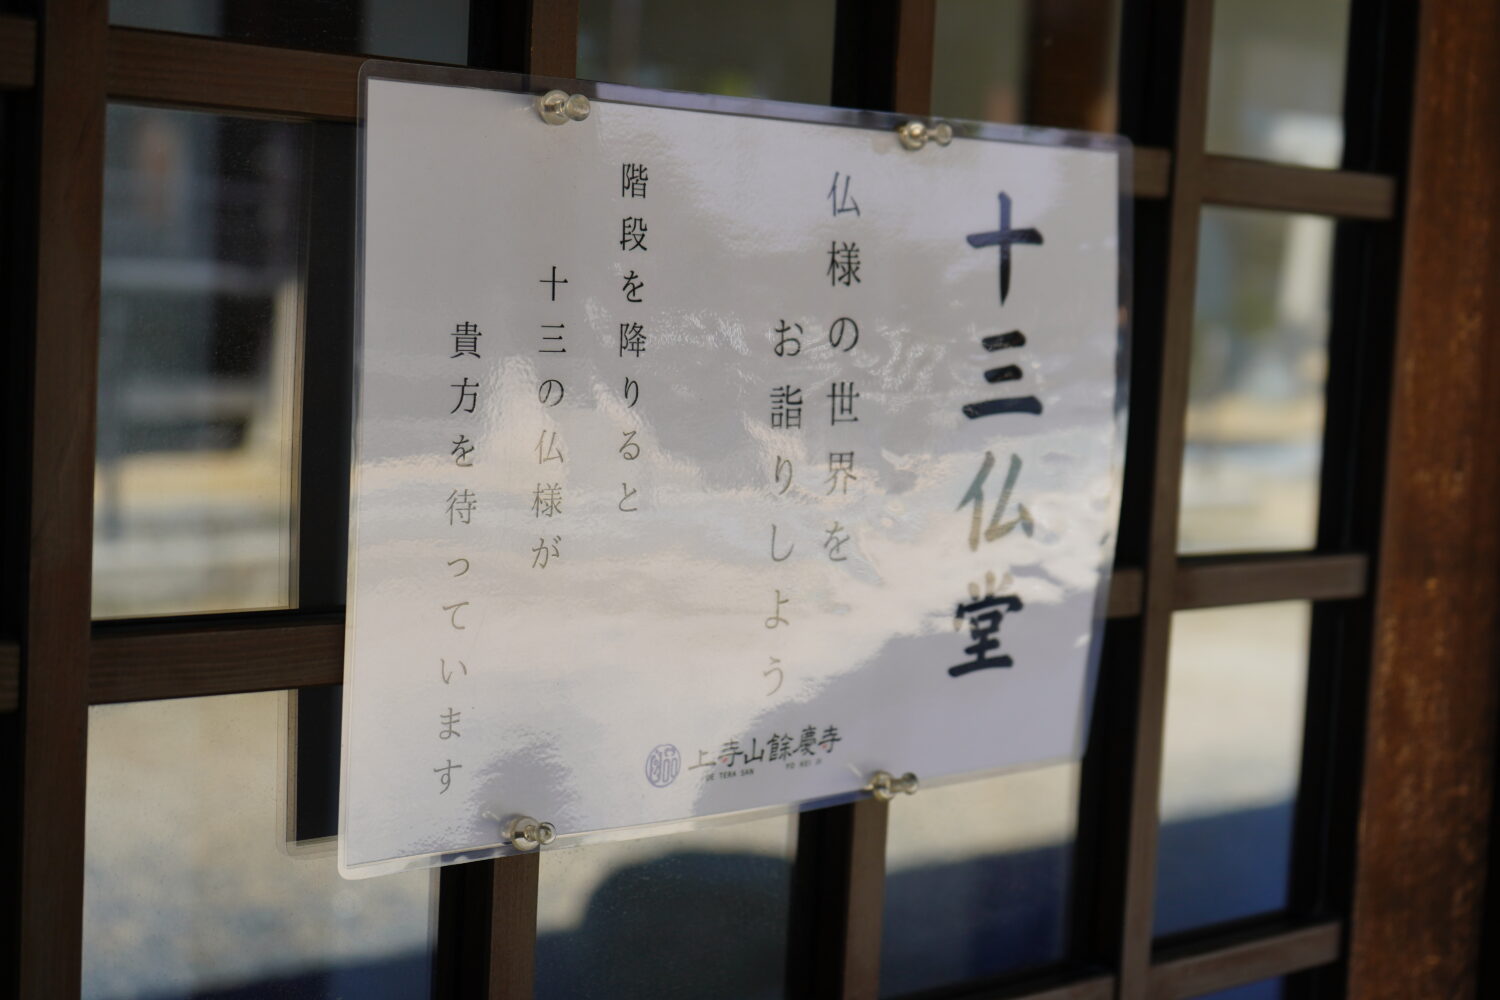 十三仏堂
仏様の世界を
お詣りしよう
階段を降りると
十三の仏様が
貴方を待っています
上寺山餘慶寺
UE TERA SAN YO KEI JI